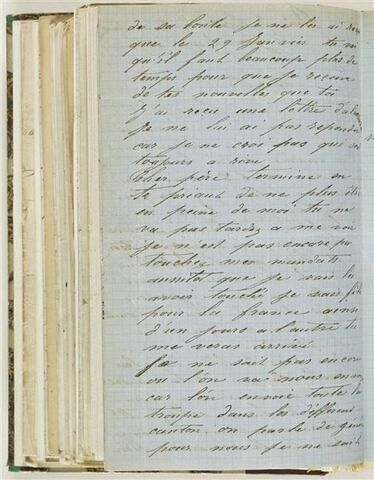 de sa bonté je ne les ai
que le 29 Janvier tu
qu'il faut beaucoup plus de
temps pour que je recoive
de tes nouvelles que toi
j'ai recu une lettre
je ne lui ai pas repondu
car je ne crois pas qui
toujours a
cher père termine en
te priant de ne plus être
en peine de moi tu ne
va pas tardez a me voir
je n'est pas encore pu
toucher mon mandats
aussitot que je vais les
avoir touché je vais
pour la france ainsi
d'un jours a l'autre tu
me veras arrivé
ne sait pas encore
ou l'on va nous
car l'on envoie toute la
troupe dans les different
canton on parle de
pour nous je ne sait